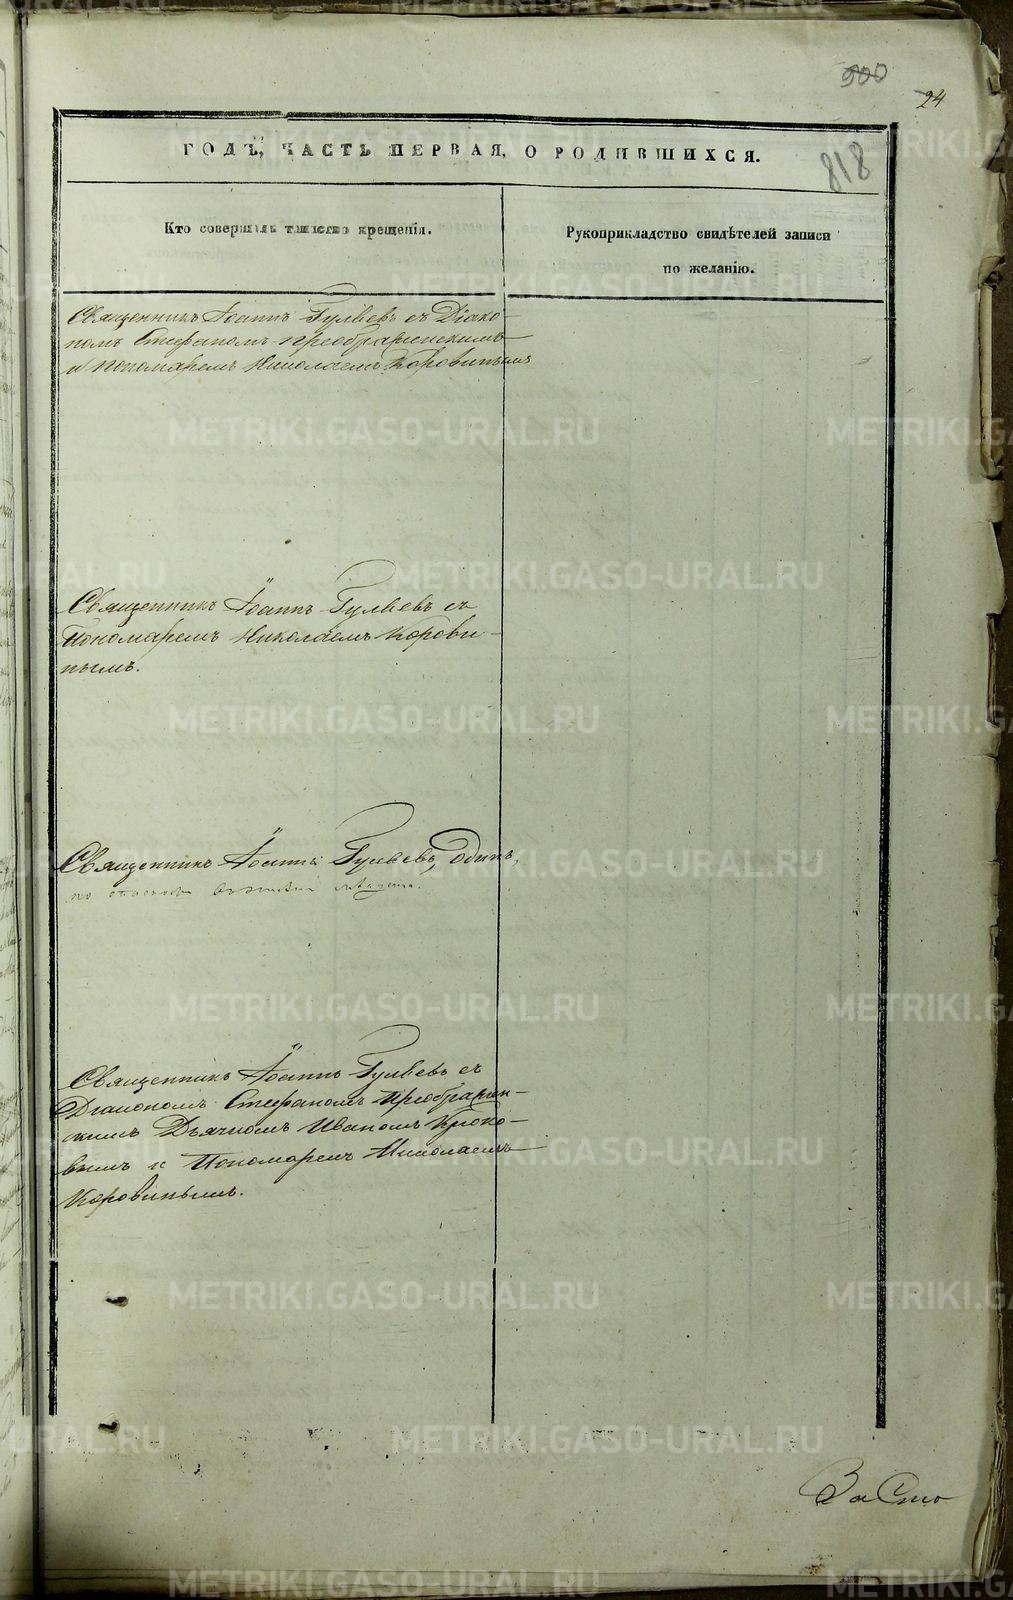 900
24
818
ГОДЪ, ЧАСТЬ ПЕРВАЯ, О РОДИВШИХСЯ.
Кто совершалъ таинство крещенія.
Рукоприкладство свидѣтелей записи
по желанію.
Священникъ Іоаннъ Гуляевъ съ Діако-
номъ Стефаномъ Преображенскимъ
и пономаремъ Николаемъ Коровинымъ
Священникъ Іоаннъ Гуляевъ съ
Пономаремъ Николаемъ Корови-
нымъ.
Священникъ Іоаннъ Гуляевъ, одинъ,
по
Священникъ Іоаннъ Гуляевъ съ
Діакономъ Стефаномъ Преображен-
скимъ Дьячкомъ Иваномъ Крюко-
вымъ и Пономаремъ Николаемъ
Коровинымъ.
METRIKI.GASO-URAL.RU